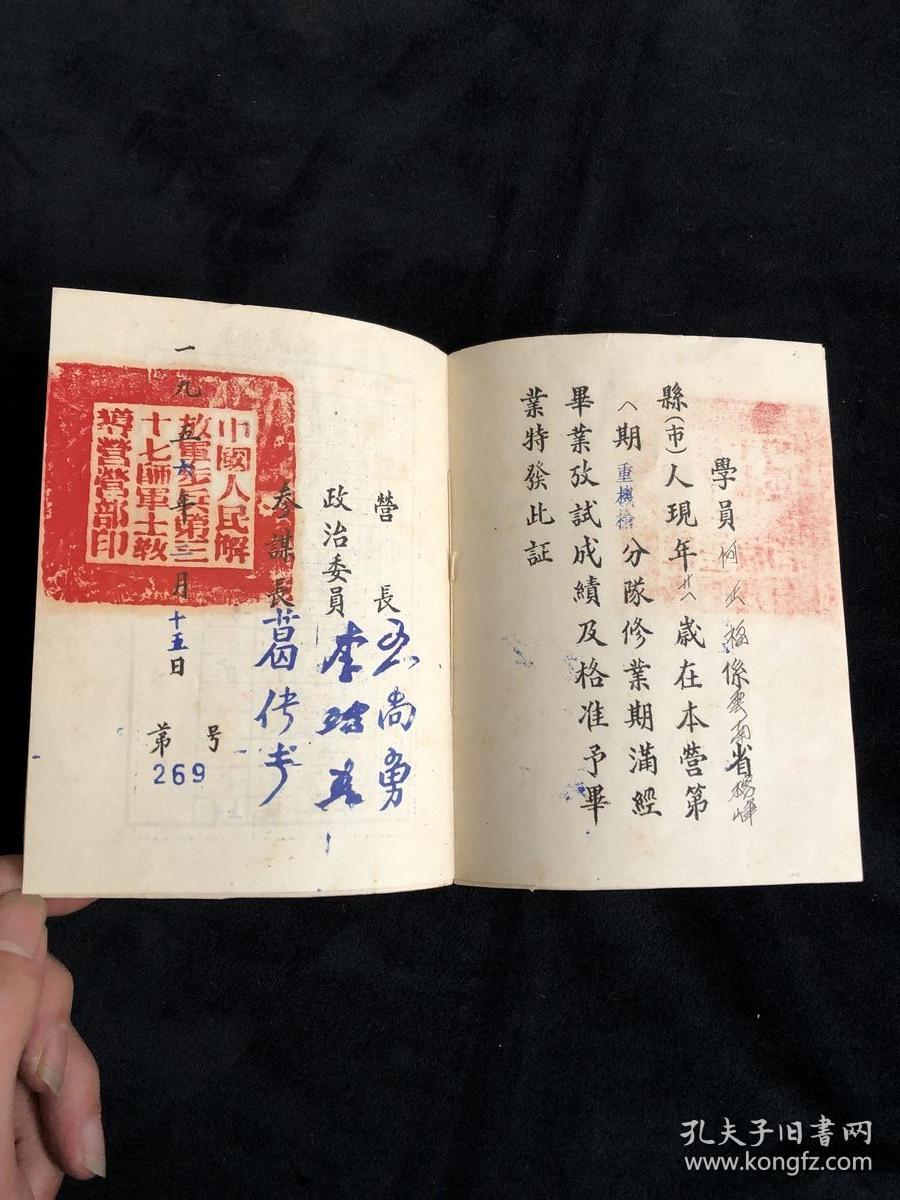 學員何 福係雲南省
縣(市)人現年十八歲在本營第
八期重機槍分隊修業期滿經
畢業攷試成績及格准予畢
業特發此証
營長 尚勇
政治委員李
參謀長葛传
一九五六年 月十五日
第269號
中國人民解
放軍步兵第三
十七師軍士教
導營營部印
孔夫子旧书网
www.kongfz.com